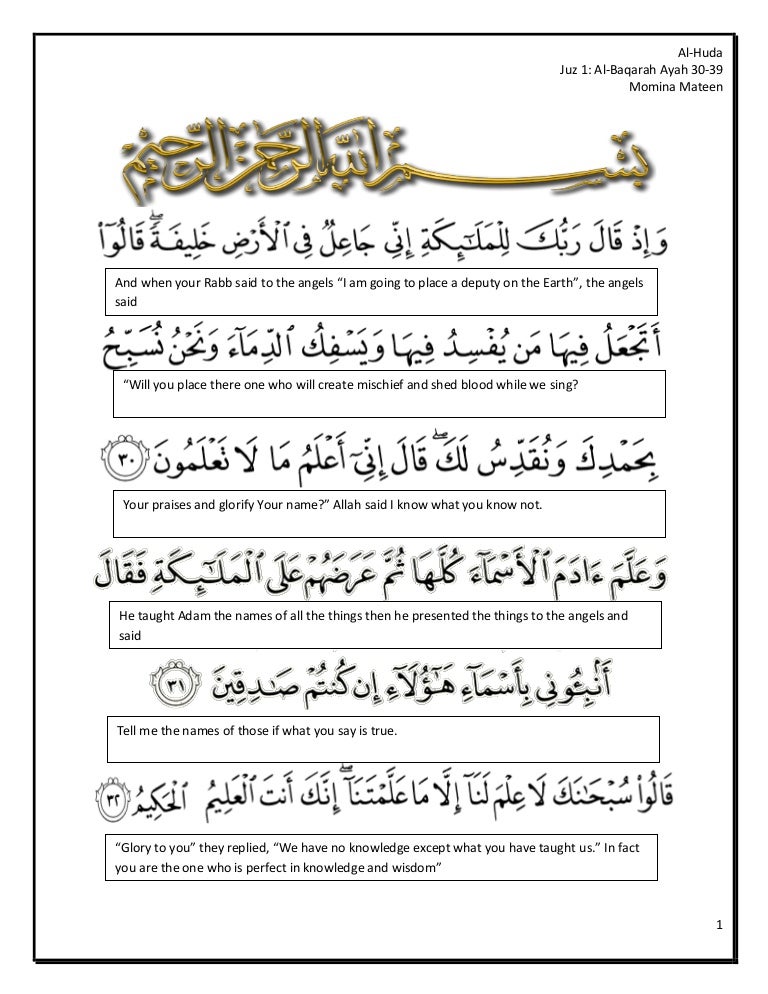 Al-Huda
Juz 1: Al-Baqarah Ayah 30-39
Momina Mateen
بِسْمِ اللَّهِ الرَّحْمَٰنِ الرَّحِيمِ
وَإِذْ قَالَ رَبُّكَ لِلْمَلَٰٓئِكَةِ إِنِّى جَاعِلٌ فِى ٱلْأَرْضِ خَلِيفَةً ۖ قَالُوٓا۟
And when your Rabb said to the angels “I am going to place a deputy on the Earth”, the angels
said
أَتَجْعَلُ فِيهَا مَن يُفْسِدُ فِيهَا وَيَسْفِكُ ٱلدِّمَآءَ وَنَحْنُ نُسَبِّحُ
“Will you place there one who will create mischief and shed blood while we sing?
بِحَمْدِكَ وَنُقَدِّسُ لَكَ ۖ قَالَ إِنِّىٓ أَعْلَمُ مَا لَا تَعْلَمُونَ ٣٠
Your praises and glorify Your name?” Allah said I know what you know not.
وَعَلَّمَ ءَادَمَ ٱلْأَسْمَآءَ كُلَّهَا ثُمَّ عَرَضَهُمْ عَلَى ٱلْمَلَٰٓئِكَةِ فَقَالَ
He taught Adam the names of all the things then he presented the things to the angels and
said
أَنۢبِـُٔونِى بِأَسْمَآءِ هَٰٓؤُلَآءِ إِن كُنتُمْ صَٰدِقِينَ ٣١
Tell me the names of those if what you say is true.
قَالُوا۟ سُبْحَٰنَكَ لَا عِلْمَ لَنَآ إِلَّا مَا عَلَّمْتَنَآ ۖ إِنَّكَ أَنتَ ٱلْعَلِيمُ ٱلْحَكِيمُ ٣٢
“Glory to you” they replied, “We have no knowledge except what you have taught us.” In fact
you are the one who is perfect in knowledge and wisdom”
1